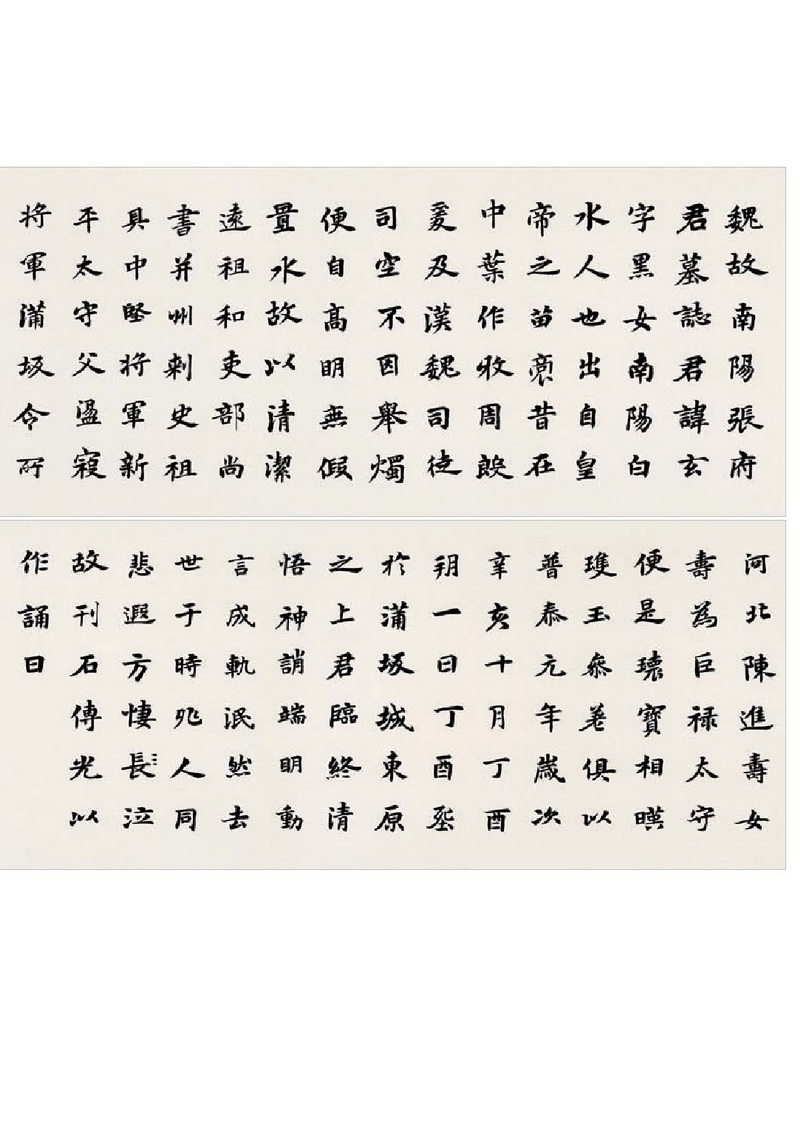 魏故南陽張府
君墓誌君諱玄
字黑女南陽白
水人也出自皇
帝之苗裔昔在
中葉作牧周殷
爰及漢魏司徒
司空不因舉燭
便自高明無假
置水故以清潔
遠祖和吏部尚
書并州刺史祖
具中堅將軍新
平太守父盪寇
將軍蒲坂令所
河北陳進壽女
壽為巨祿太守
便是瓌寶相暎
瓊玉參差俱以
普泰元年歲次
辛亥十月丁酉
朔一日丁酉葬
於蒲坂城東原
之上君臨終清
悟神誚端明動
言成軌泯然去
世于時兆人同
悲遐方悽長泣
故刊石傳光以
作誦曰